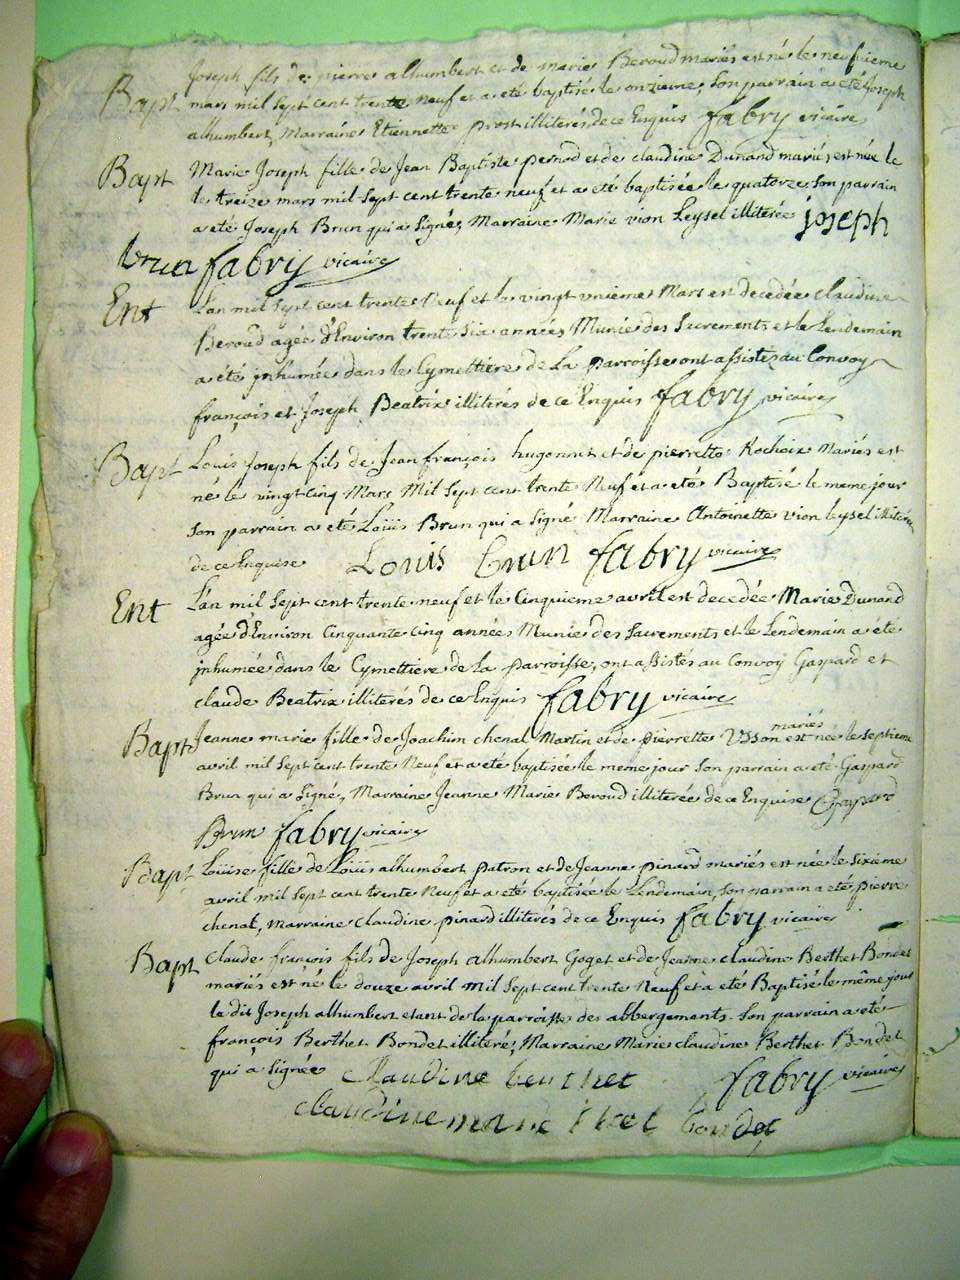 Bapt Joseph fils de pierre alhumbert et de marie Beroud mariés est né le neufieme
mars mil sept cent trente neuf et a eté baptisé le onzieme, son parrain a eté Joseph
alhumbert, Marraine Etiennette prost illiterés de ce Enquis fabry vicaire
Bapt Marie Joseph fille de Jean Baptiste pernod et de claudine Dunand mariés, est née le
le treize mars mil sept cent trente neuf et a eté baptisée le quatorze son parrain
a eté Joseph Brun qui a signé, Marraine Marie vion Leysel illiterée joseph
brun fabry vicaire
Ent L'an mil sept cent trente Neuf et le vingt unieme Mars est decedée claudine
Beroud agée d'Environ trente six années Munie des sacrements et le Lendemain
a eté jnhumée dans le Cymettiere de La parroisse ont assistez au Convoy
françois et Joseph Beatrix illiterés de ce Enquis fabry vicaire
Bapt Louis Joseph fils de Jean françois hugonnet et de pierrette Rochoix Mariés est
né le vingt cinq Mars Mil sept cent trente Neuf et a eté Baptisé le meme jour
son parrain a eté Loüis Brun qui a signé Marraine Antoinette vion leysel illiterée
de ce Enquise Louis brun fabry vicaire
Ent L'an mil sept cent trente neuf et le Cinquieme avril est decedée Marie Dunand
agée d'Environ Cinquante Cinq années Munie des sacrements et le Lendemain a eté
jnhumée dans le Cymettiere de la parroisse, ont assistés au Convoy Gaspard et
claude Beatrix illiterés de ce Enquis fabry vicaire
mariés
Bapt Jeanne marie fille de Joachim chenal Martin et de pierrette est née le septieme
avril mil sept cent trente Neuf et a eté baptisée le meme jour son parrain a eté Gaspard
Brun qui a signé, Marraine Jeanne Marie Beroud illiterée de ce Enquise Gaspard
Brun fabry vicaire
Bapt Loüise fille de Loüis alhumbert patron et de Jeanne pinard mariés est née le sixieme
avril mil sept cent trente Neuf et a eté baptisée le Lendemain, son parrain a eté pierre
chenal, marraine claudine pinard illiterés de ce Enquis fabry vicaire
Bapt claude françois fils de Joseph alhumbert Goget et de Jeanne claudine Berthet Bondet
mariés est né le douze avril mil sept cent trente Neuf et a eté Baptisé le même jour
le dit Joseph alhumbert etant de la parroisse des abbergements. son parrain a eté
françois Berthet Bondet illiteré, Marraine Marie claudine Berthet Bondet
qui a signée claudine berthet fabry vicaire
claudine bondet